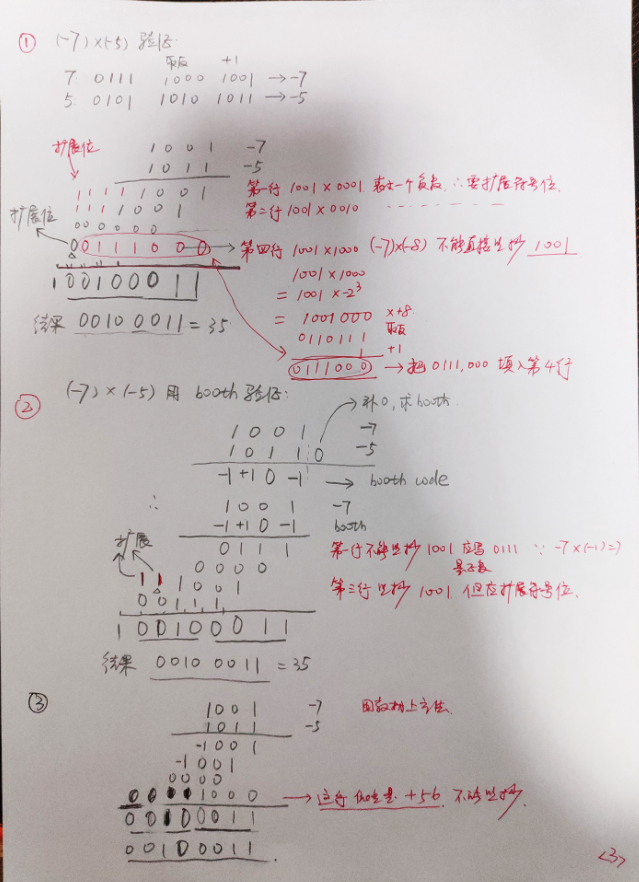 ① (-7)×(-5) 验证:
取反 +1
7: 0111 1000 1001 → -7
5: 0101 1010 1011 → -5
扩展位 1001 -7
1011 -5
11111001 第一行 1001×0001 表示一个负数, ∴要扩展符号位.
1111001 第二行 1001×0010
扩展位 000000
00111000 → 第四行 1001×1000 (-7)×(-8) 不能直接照抄 1001
100100011
1001×1000
= 1001×-2³
结果 00100011 = 35
= 1001000 ×+8
0110111 取反
+1
0111000 → 把 0111,000 填入第4行
② (-7)×(-5) 用 booth 验证:
→ 补0, 求booth.
1001 -7
10110 -5
-1+10-1 → booth code
∴ 1001 -7
-1+10-1 booth
扩展 0111 第一行不能照抄 1001 应写 0111 ∵ -7×(-1)=7
0000 是正数
111001 第三行照抄 1001 但应扩展符号位.
00111
100100011
结果 00100011 = 35
③ 1001 -7 用数学上方法
1011 -5
-1001
-1001
0000
00111000 → 这行 但它是 +56, 不能照抄
00100011
00100011
<3>